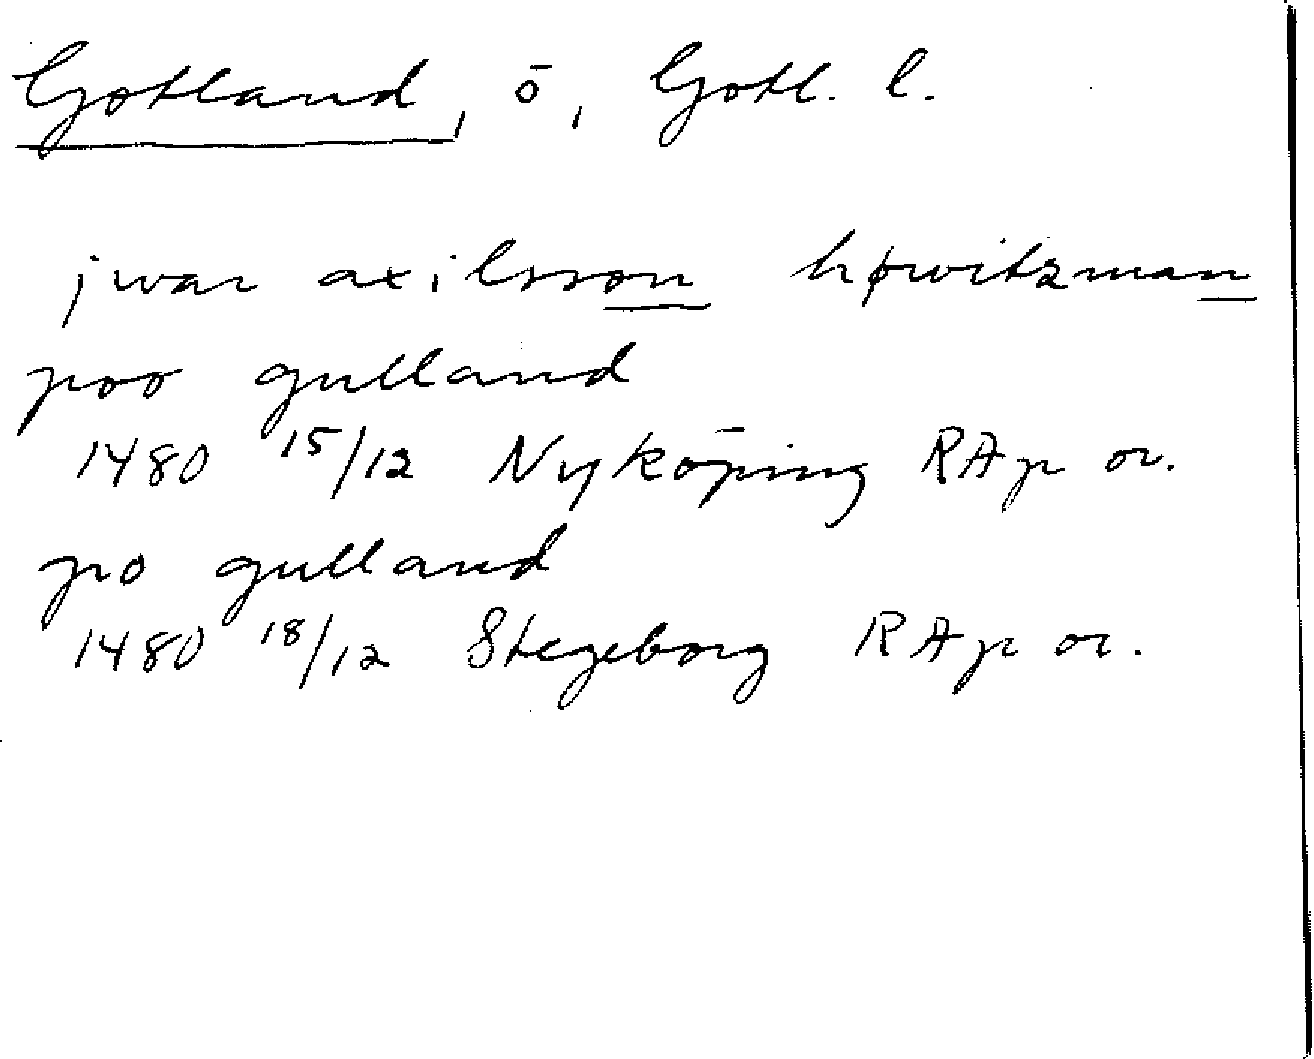 Gotland, ö, Gotl. l.
jwar axilsson høwitzman
poo gulland
1480 15/12 Nyköping RAp or.
po gulland
1480 18/12 Stegeborg RAp or.